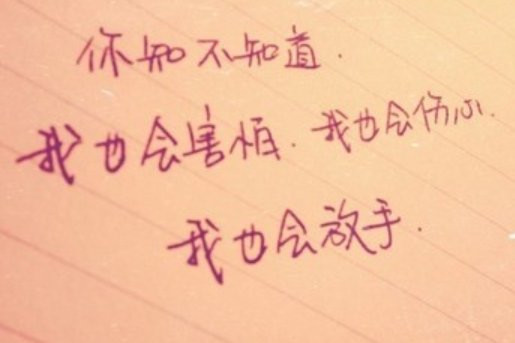 你知不知道.
我也会害怕. 我也会伤心.
我也会放手.